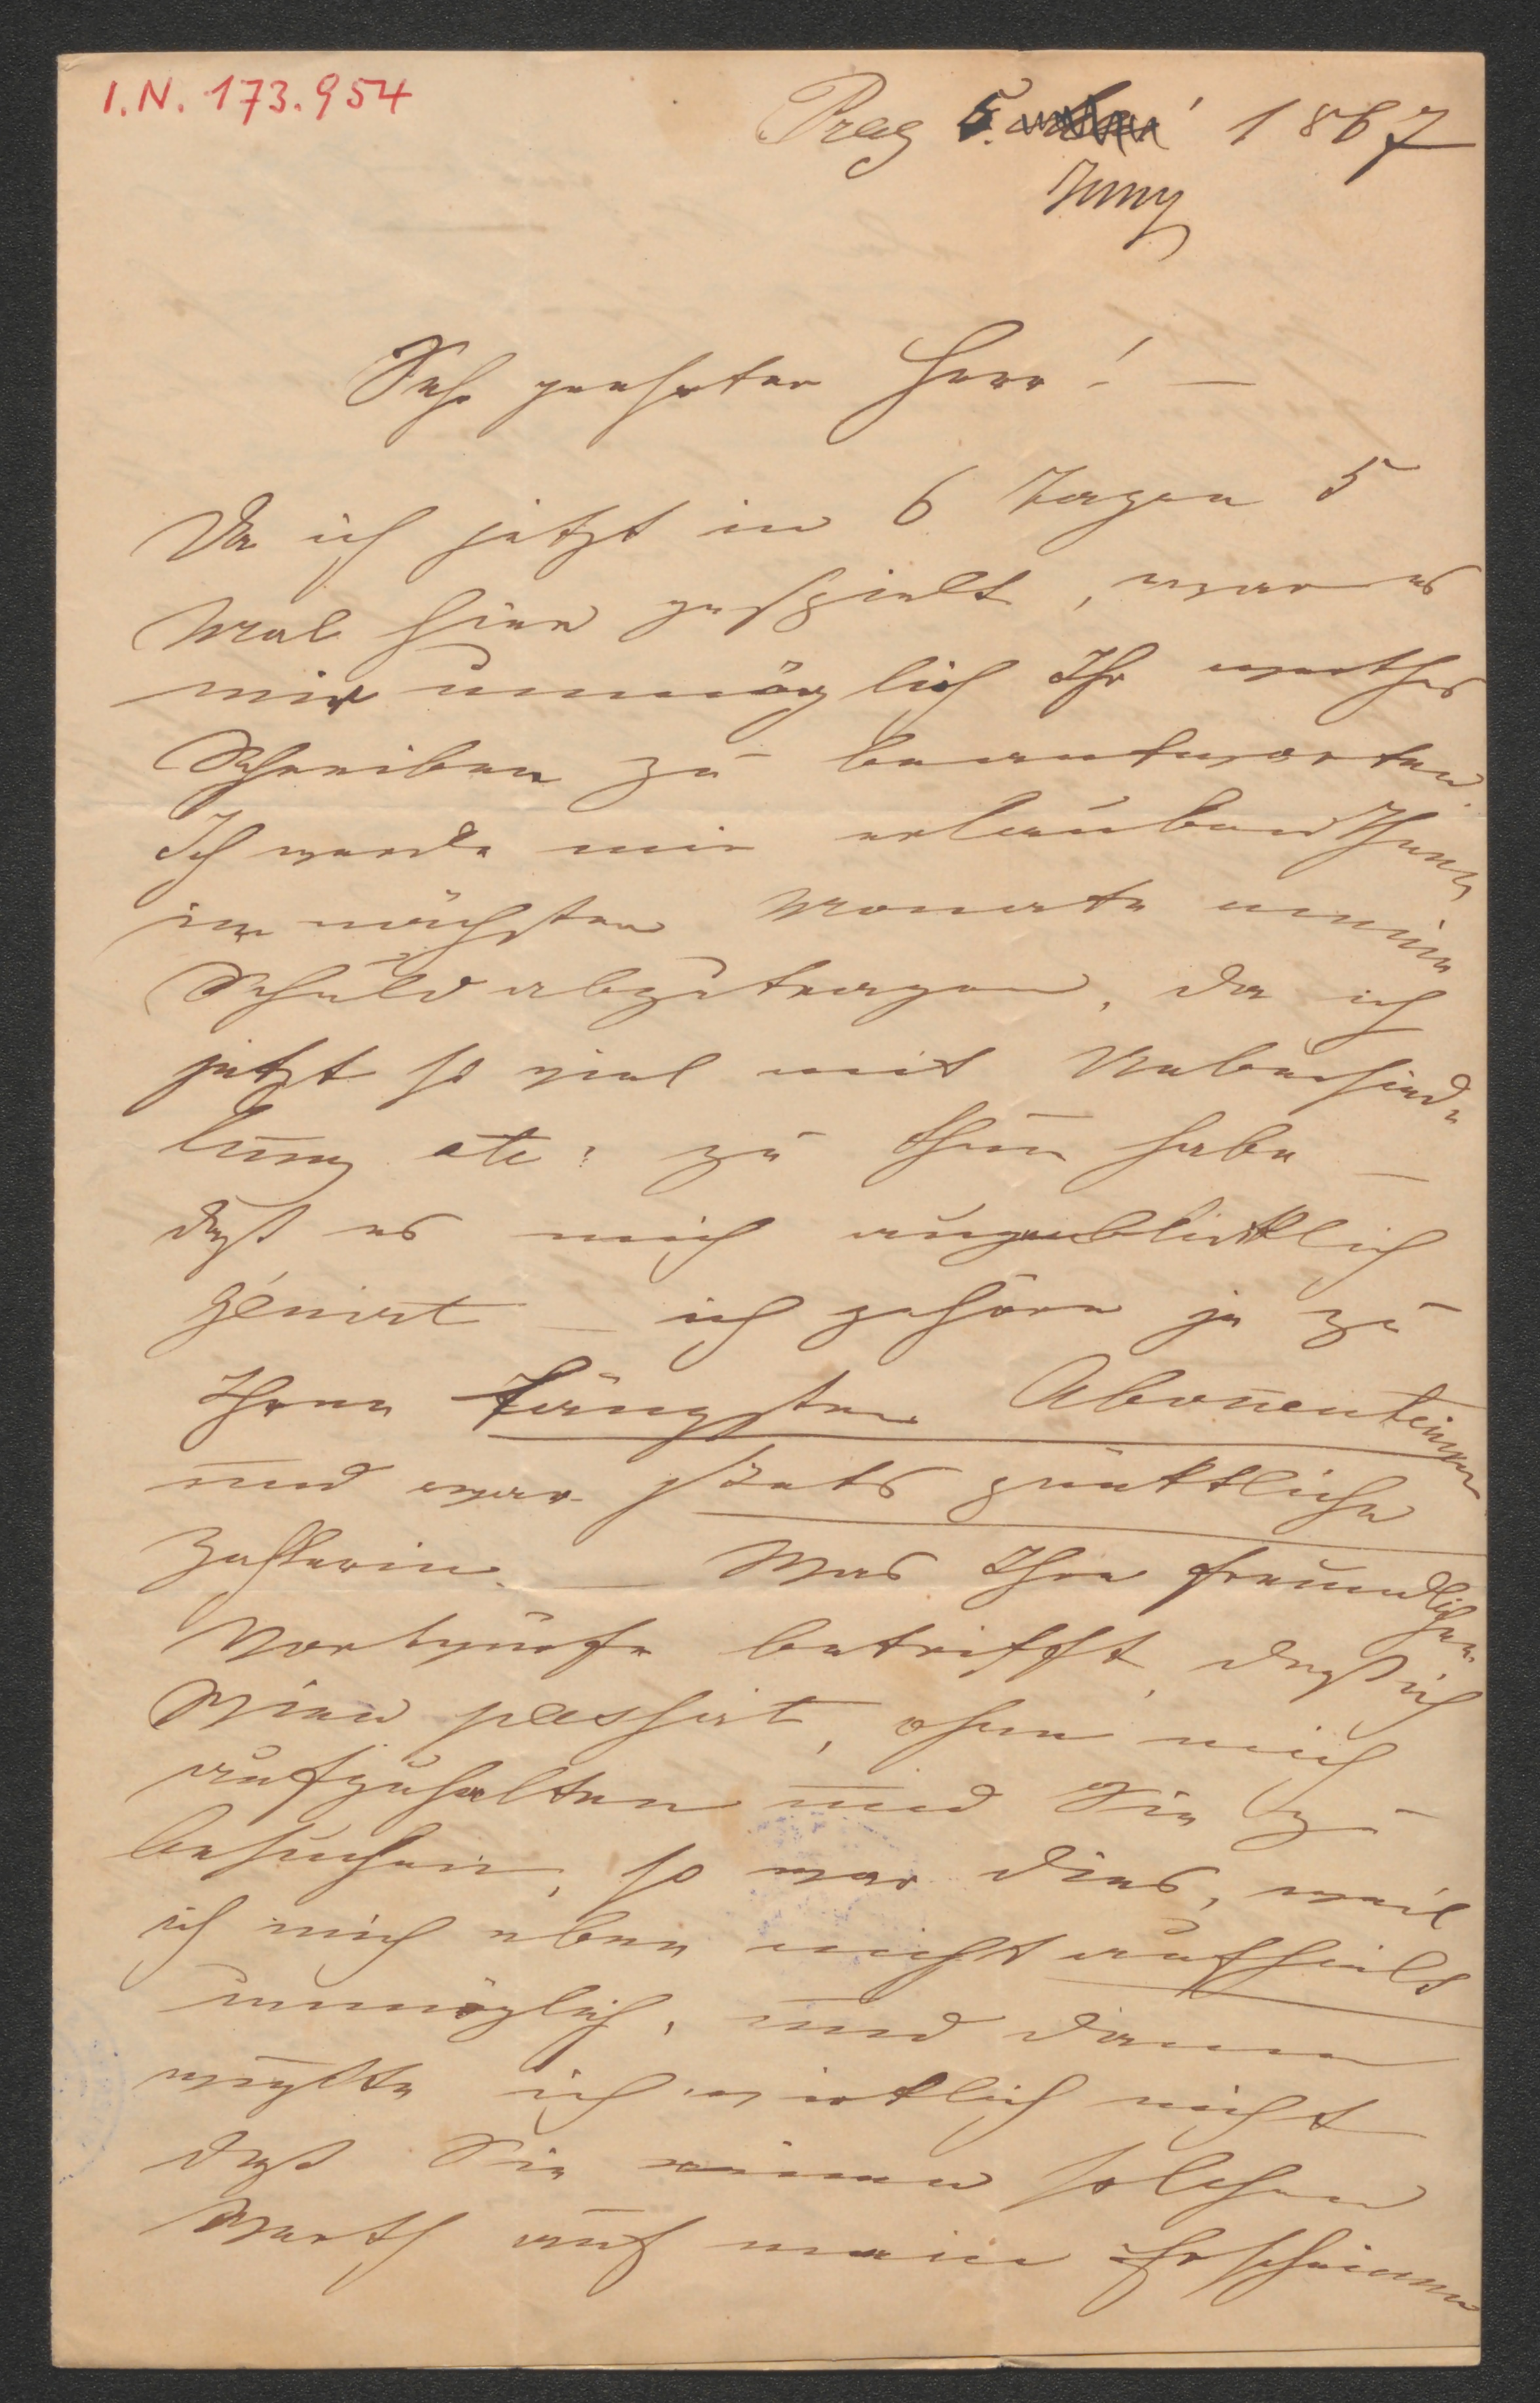 I.N. 173.954
Prag 5. 1867
Juny
Sehr geehrter Herr! —
Da ich jetzt in 6 Tagen 5
Mal hier gespielt, war es
mir unmöglich Ihr werthes
Schreiben zu beantworten.
Ich werde mir erlauben Ihnen
im nächsten Monate meine
Schuld abzutragen, da ich
jetzt so viel mit Uebersied-
lung etc: zu thun habe —
daß es mich augenblicklich
génirt — ich gehöre ja zu
Ihren längsten Abonentinen
und war stets pünktliche
Zahlerin. — Was Ihre freundlichen
Vorwürfe betrifft, daß ich
Wien passirt, ohne mich
aufzuhalten und Sie zu
besuchen, so war dies, weil
ich mich eben nicht aufhielt
unmöglich, und dann
wußte ich wirklich nicht
daß Sie einen solchen
Werth auf mein Erscheinen